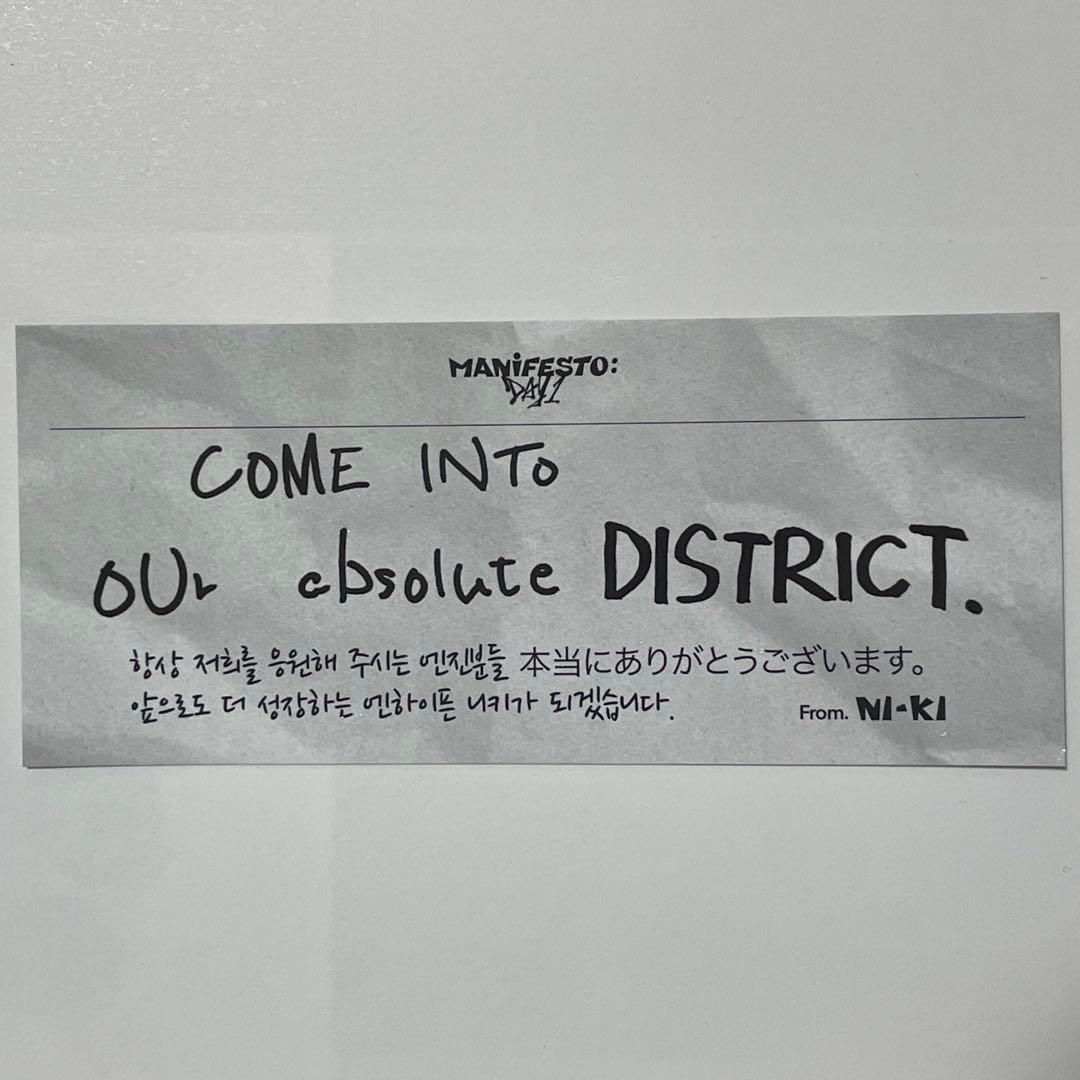 MANiFESTO:
DAY 1
COME INTO
OUr absolute DISTRICT.
항상 저희를 응원해 주시는 엔진분들 本当にありがとうございます。
앞으로도 더 성장하는 엔하이픈 니키가 되겠습니다.
From. NI-KI